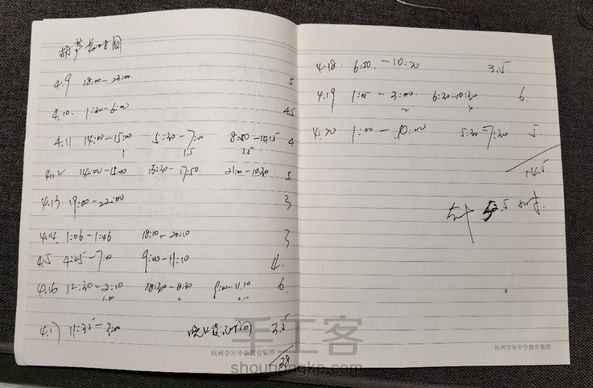 葫芦 时间
4.9 18:00-23:00 5
4.10. 1:30-6:00 4.5
4.11 14:00-15:00 5:30-7:00 8:50-10:15 4
1 1.5 1.5
4.12 14:00-15:00 15:30-17:50 21:00-10:30 5
4.13 19:00-22:00 3
4.14 1:06-1:46 18:10-20:10 3
4.15 4:25-7:00 9:00-11:10 4.
4.16 12:30-2:10 18:30-8:30 9:00-11:10 6.
4.17 11:35-3:00 3.5
38
杭州学军中学教育集团
手工客
shougongke.com
4.18 6:50.-10:20 3.5
4.19 1:05-3:00 6:30-10:30 6.
2 4
4.20 1:00-10:00 5:30-7:30 5.
14.5
共计 52.5 小时.
杭州学军中学教育集团